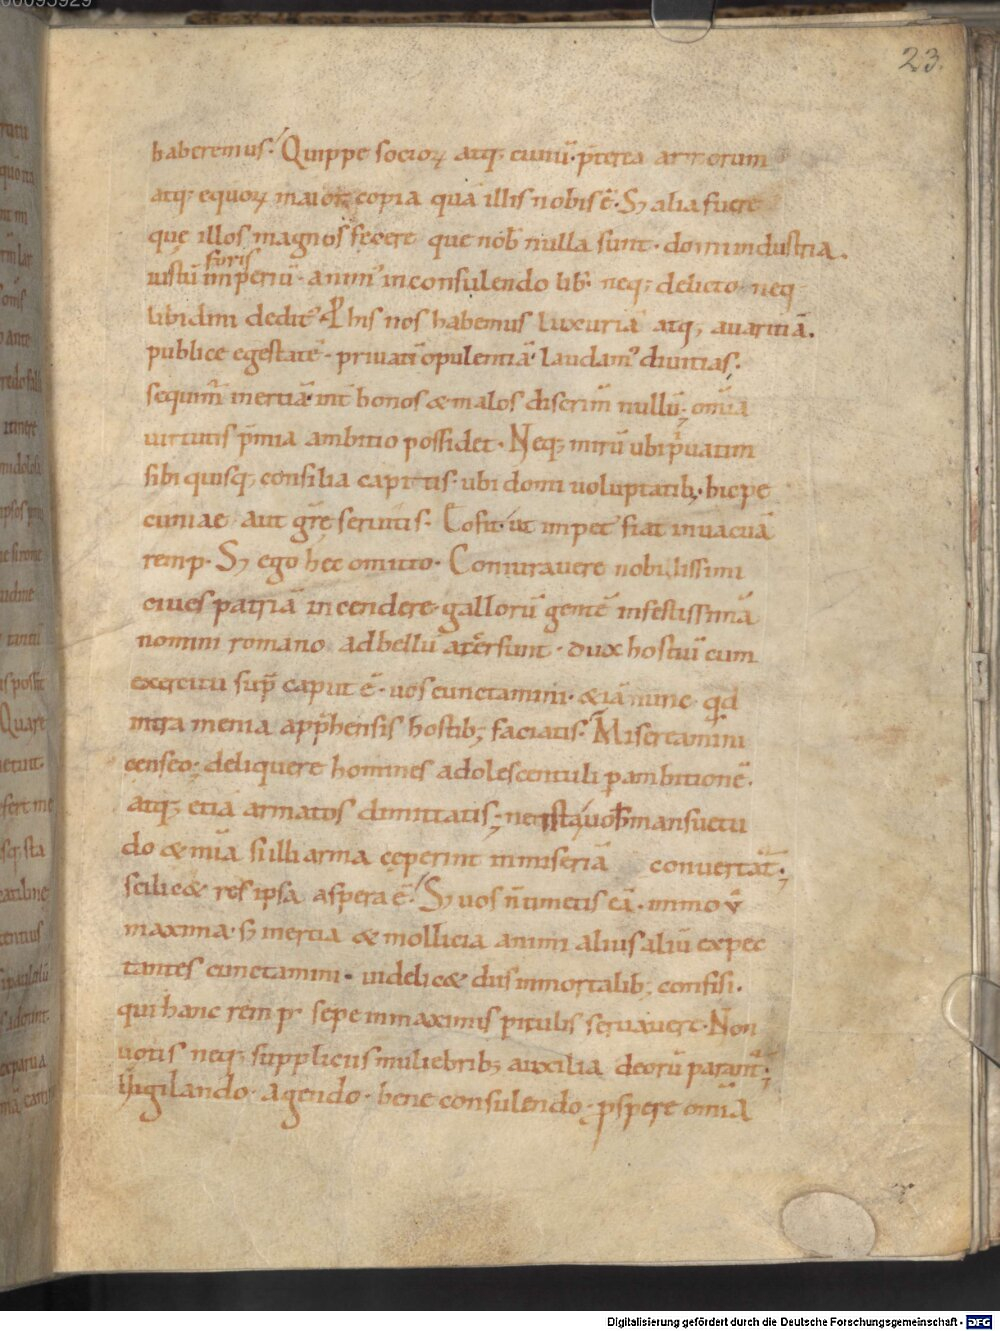 23.
haberemus. Quippe socioꝝ atq; ciuiū. p̄terea armorum
atq; equoꝝ maior copia quā illis nobis ē. Sꝫ alia fuere
quę illos magnos fecere que nob̄ nulla sunt. domi industria.
foris
iustū imperiū. animꝰ in consulendo lib̄. neq; delicto neq
libidini deditꝰ. P his nos habemus luxuriā atq; auaritiā.
publice egestatē. priuatī opulentiā. laudamꝰ diuitias.
sequim̄ inertiā. int̄ bonos & malos discrim̄ nullū. om̄ia
uirtutis p̄mia ambitio possidet. Neq; mirū ubi p̄uatim
sibi quisq; consilia capitis. ubi domi uoluptatib; hic pe
cuniae aut gr̄e seruitis. Eo fit ut impet͛ fiat in uacuā
remp. Sꝫ ego hec omitto. Coniurauere nobilissimi
ciues patriā incendere. gallorū gentē infestissimā
nomini romano ad bellū arcersunt. dux hostiū cum
exercitu sup̄ caput ē. uos cunctamini. & iā nunc qd
intra menia app̄hensis hostib; faciatis. Misereamini
censeo. deliquere homines adolescentuli p ambitionē.
atq; etiā armatos dimittatis. ne ista uob̄ mansuetu
do & mīa si illi arma ceperint in miseriā convertat̄.
scilic& res ipsa aspera ē. Sꝫ uos n̄ timetis eā. immo v̄
maxima. s; inertia & mollicia animi alius aliū expec
tantes cunctamini. uidelic& diis inmortalib; confisi.
qui hanc rem p sepe in maximis piculis seruauere. Non
uotis neq; suppliciis muliebrib; auxilia deorū parant̄.
Uigilando. agendo. bene consulendo. pspere om̄ia
Digitalisierung gefördert durch die Deutsche Forschungsgemeinschaft - DFG